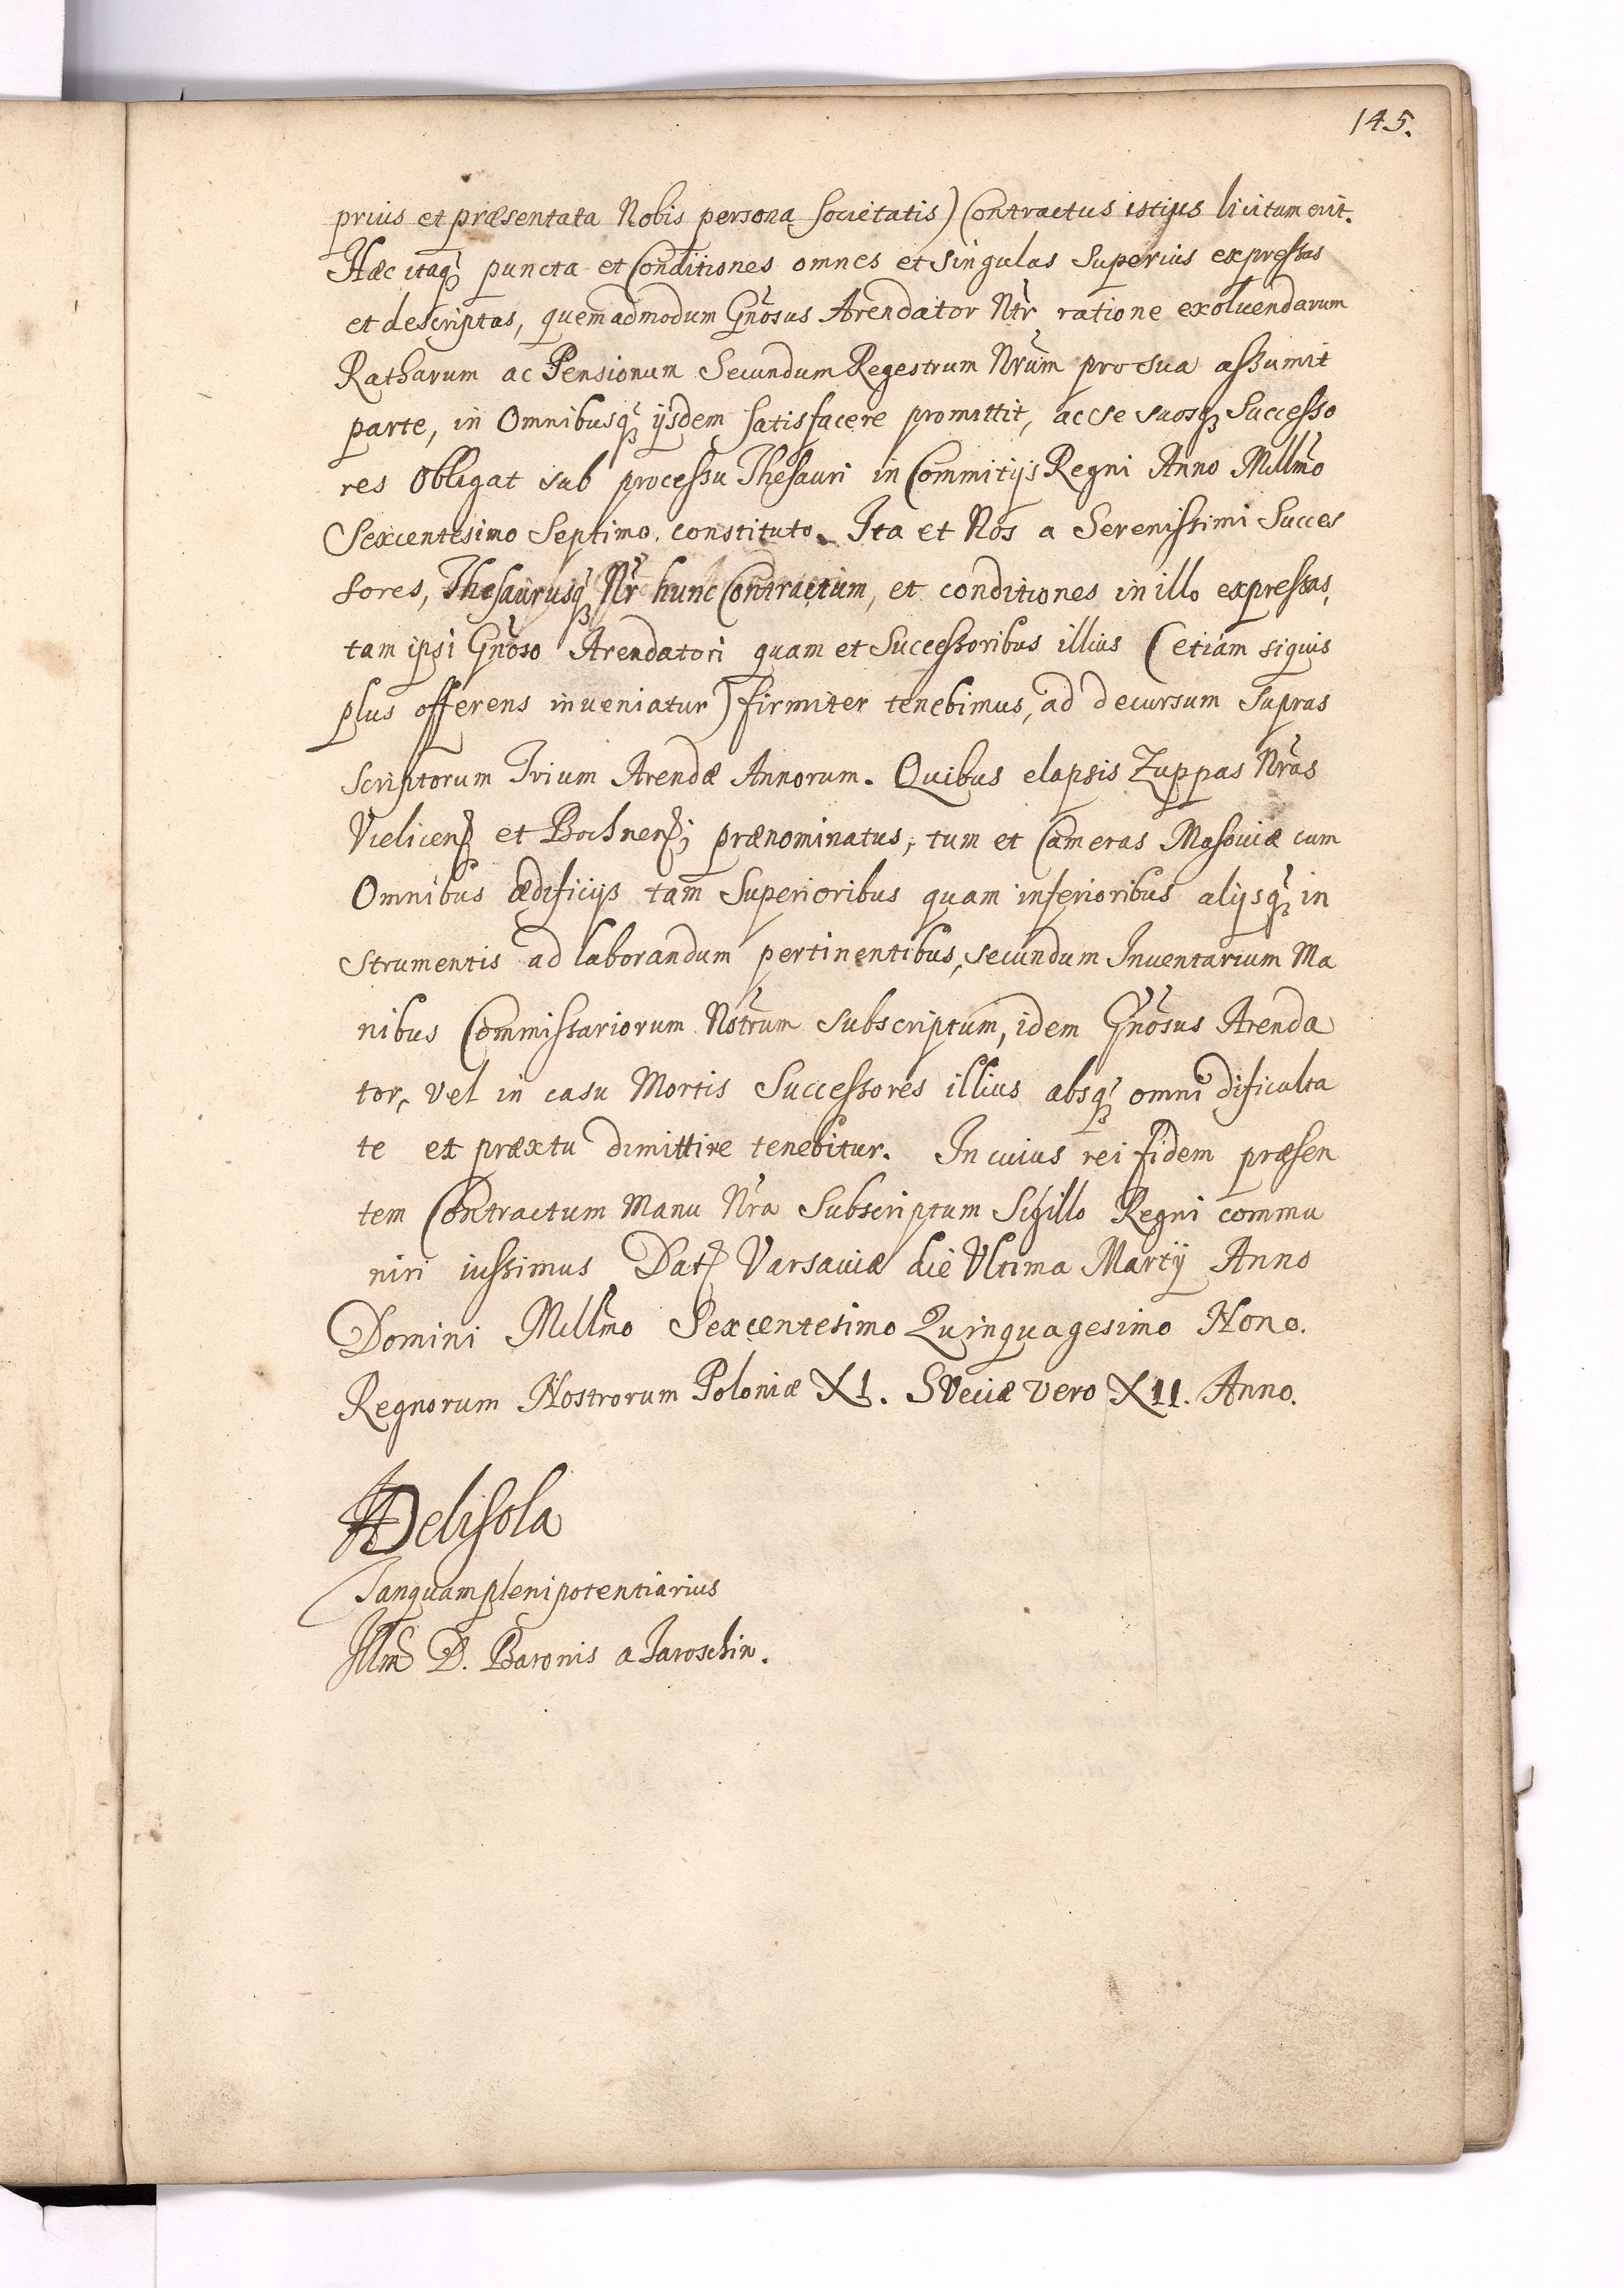 145.
prius et præsentata Nobis persona Societatis) Contractus istius licitum erit.
Hæc itaqꝫ puncta et Conditiones omnes et singulas Superius expressas
et descriptas, quemadmodum Gnosus Arendator Ntr ratione exoluendarum
Ratharum ac Pensionum Secundum Regestrum Nrum pro sua assumit
parte, in Omnibusqꝫ ijsdem satisfacere promittit, ac se suosqꝫ Successo
res Obligat sub processu Thesauri in Commitijs Regni Anno Millmo
Sexcentesimo Septimo constituto. Ita et Nos a Serenissimi Succes
sores, Thesaurusqꝫ Nr hunc Contractum, et conditiones in illo expressas,
tam ipsi Gnoso Arendatori quam et Successoribus illius (etiam siquis
plus offerens inueniatur) firmiter tenebimus, ad decursum supras
scriptorum Trium Arendæ Annorum. Quibus elapsis Zuppas Nras
Vielicenꝭ et Bochnenꝭ; prænominatus, tum et Cameras Masouiæ cum
Omnibus ædificijs tam Superioribus quam inferioribus alijsqꝫ in
strumentis ad laborandum pertinentibus, secundum Inuentarium Ma
nibus Commissariorum Nostrum subscriptum, idem Gnosus Arenda
tor, vel in casu Mortis Successores illius absqꝫ omni dificulta
te et præxtu dimittire tenebitur. In cuius rei fidem præsen
tem Contractum Manu Nra Subscriptum Sigillo Regni commu
niri iussimus Datꝭ Varsauiæ die Vltima Martij Anno
Domini Millmo Sexcentesimo Quinquagesimo Nono.
Regnorum Nostrorum Poloniæ XI. Sveciæ vero XII. Anno.
Delisola
Tanquam plenipotentiarius
Illmi D. Baronis a Jaroschin.